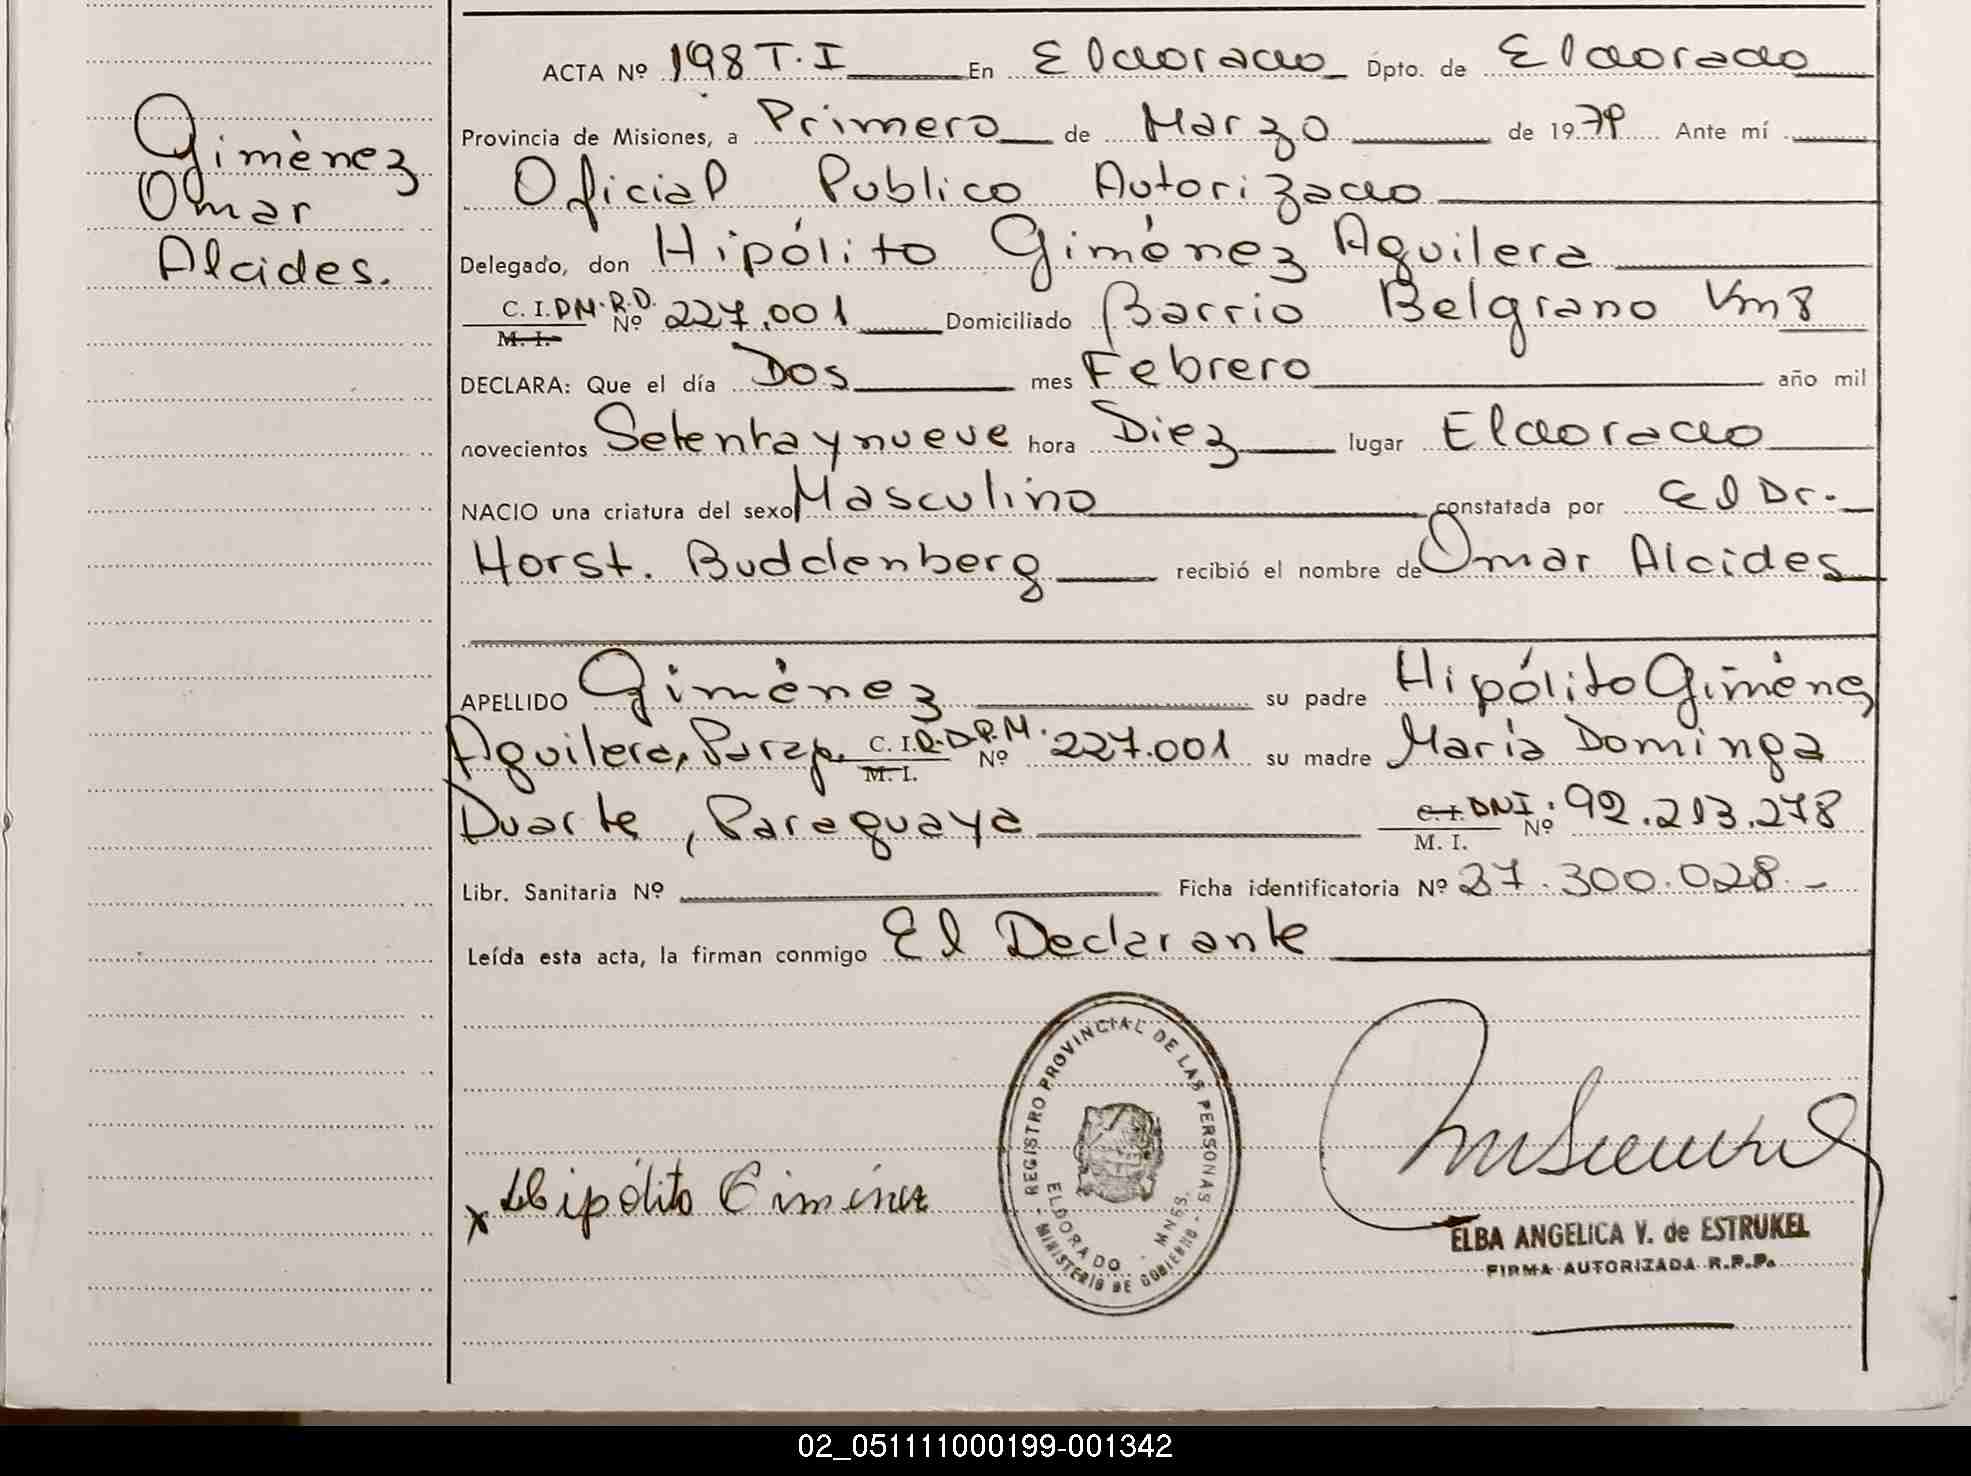 Giménez
Omar
Alcides.
ACTA Nº 198 T.I En Eldorado Dpto. de Eldorado
Provincia de Misiones, a Primero de Marzo de 1979 Ante mí
Oficial Publico Autorizado
Delegado, don Hipólito Giménez Aguilera
C. I. DM.R.D. Nº 227.001 Domiciliado Barrio Belgrano Km 8
M. I.
DECLARA: Que el día Dos mes Febrero año mil
novecientos Setenta y nueve hora Diez lugar Eldorado
NACIO una criatura del sexo Masculino constatada por El Dr.
Horst. Buddenberg recibió el nombre de Omar Alcides
APELLIDO Giménez su padre Hipólito Giménez
Aguilera, Parag. C. I. R.D.P.M. Nº 227.001 su madre María Dominga
M. I.
Duarte, Paraguaya C. I. DNI: Nº 92.213.278
M. I.
Libr. Sanitaria Nº Ficha identificatoria Nº 27.300.028.-
Leída esta acta, la firman conmigo El Declarante
REGISTRO PROVINCIAL DE LAS PERSONAS
ELDORADO - MNES.
MINISTERIO DE GOBIERNO
x Hipólito Giménez
ELBA ANGELICA V. de ESTRUKEL
FIRMA AUTORIZADA R.P.P.
02_051111000199-001342